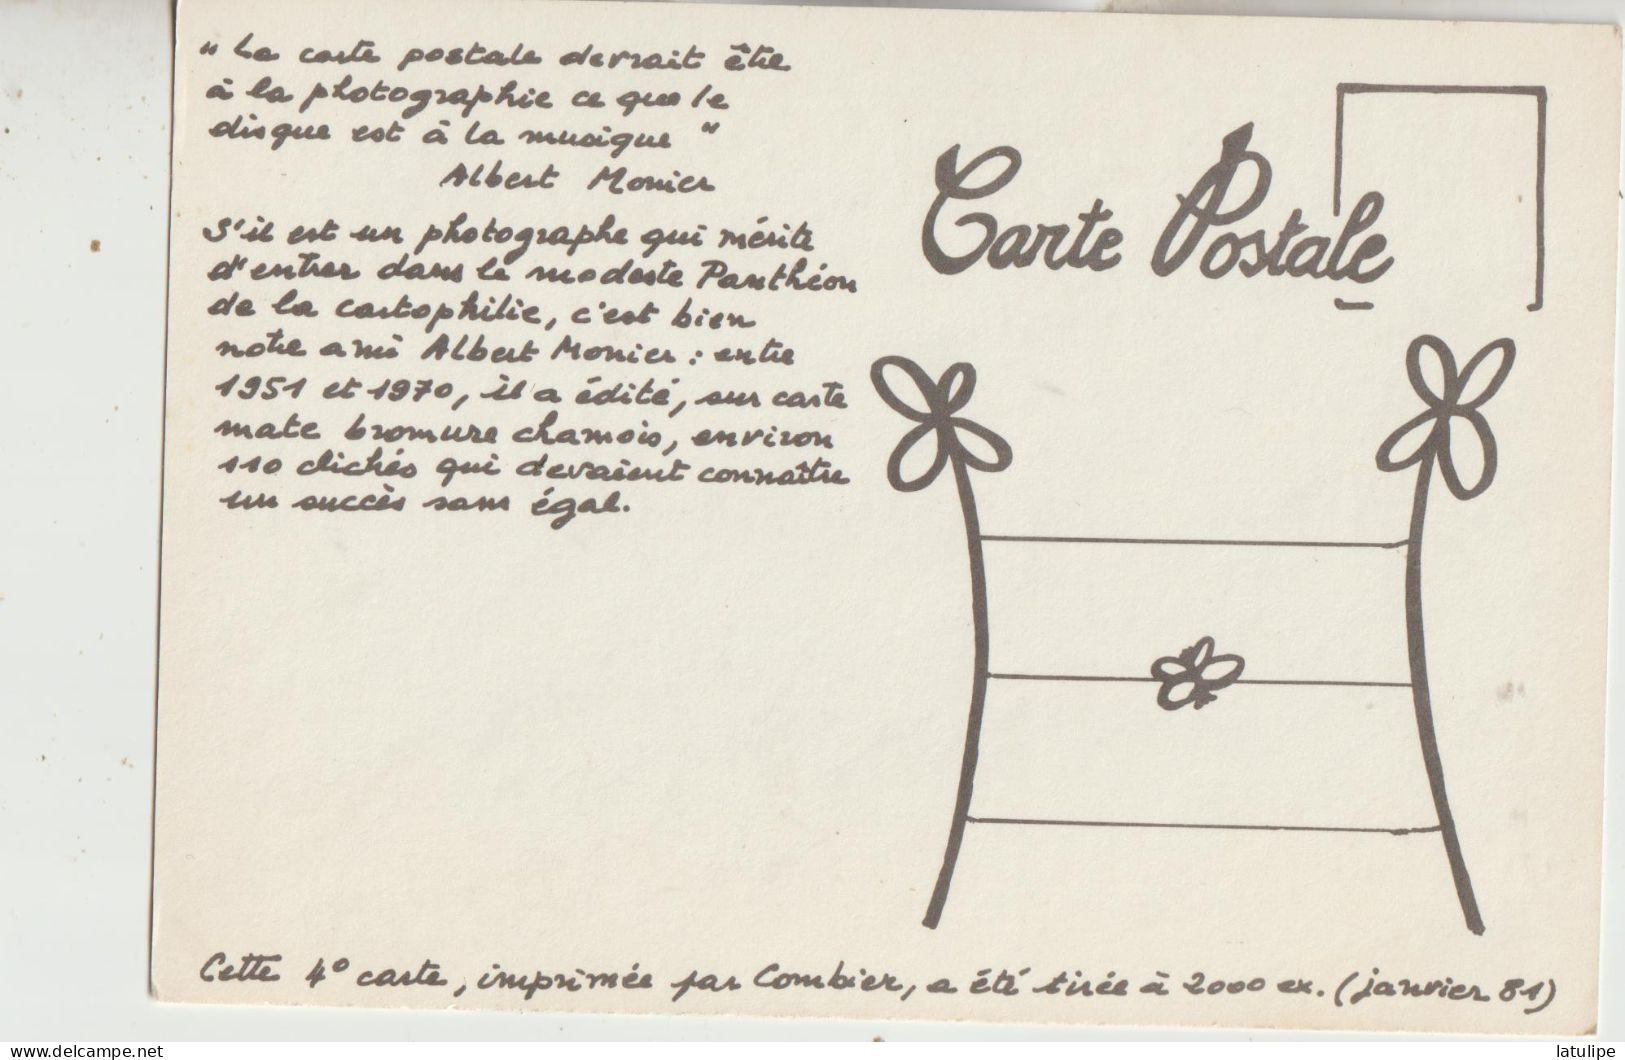 " La carte postale devrait être
à la photographie ce que le
disque est à la musique "
Albert Monier
S'il est un photographe qui mérite
d'entrer dans le modeste Panthéon
de la cartophilie, c'est bien
notre ami Albert Monier : entre
1951 et 1970, il a édité, sur carte
mate bromure chamois, environ
110 clichés qui devaient connaître
un succès sans égal.
Carte Postale
Cette 4° carte, imprimée par Combier, a été tirée à 2000 ex. (janvier 81)
www.delcampe.net
latulipe